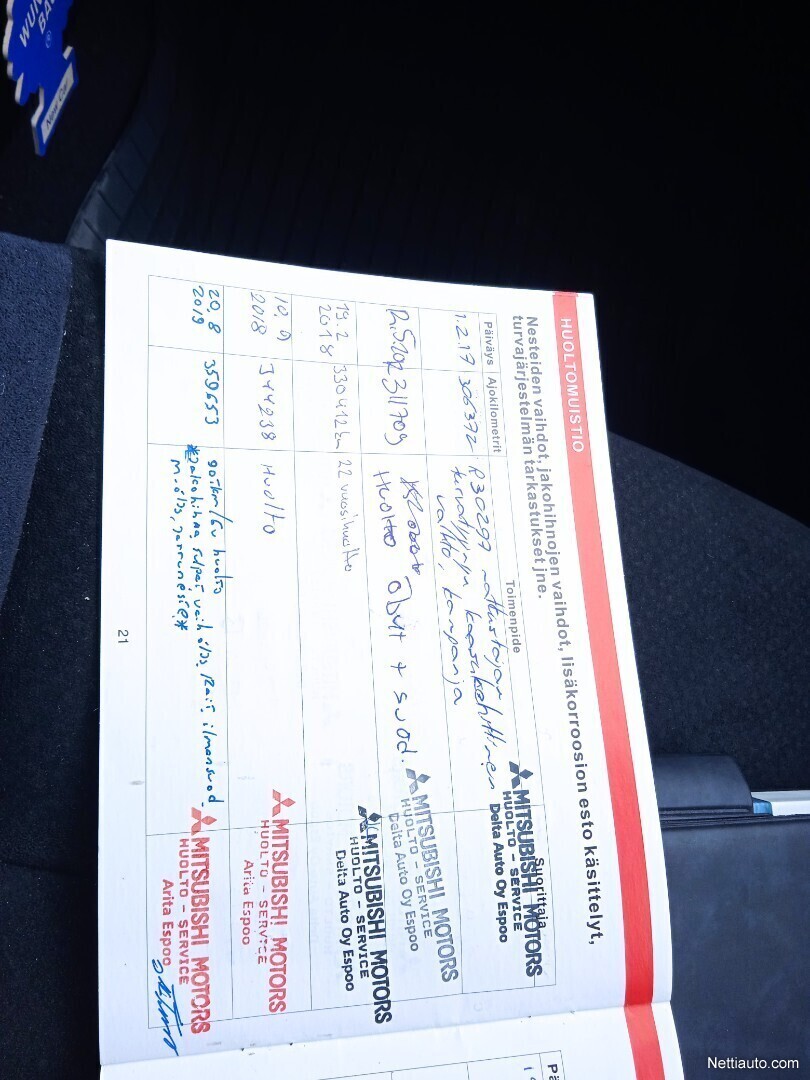 WUN
BA
New Car
HUOLTOMUISTIO
Nesteiden vaihdot, jakohihnojen vaihdot, lisäkorroosion esto käsittelyt,
turvajärjestelmän tarkastukset jne.
Päiväys Ajokilometrit Toimenpide Suorittaja
1.2.17 306372 R30297 matkustajan
turvatyynyn kaasukehittimen
vaihto, kampanja
MITSUBISHI MOTORS
HUOLTO - SERVICE
Delta Auto Oy Espoo
311709
Huolto öljyt + suod.
MITSUBISHI MOTORS
HUOLTO - SERVICE
Delta Auto Oy Espoo
19.2
2018 330412 km 22 vuosihuolto
MITSUBISHI MOTORS
HUOLTO - SERVICE
Delta Auto Oy Espoo
10.9
2018 344238 Huolto
MITSUBISHI MOTORS
HUOLTO - SERVICE
Arita Espoo
20.8
2019 359653 90tkm/6v huolto
ilmansuod
m.öljy, jarruneste*
MITSUBISHI MOTORS
HUOLTO - SERVICE
Arita Espoo
21
Nettiauto.com